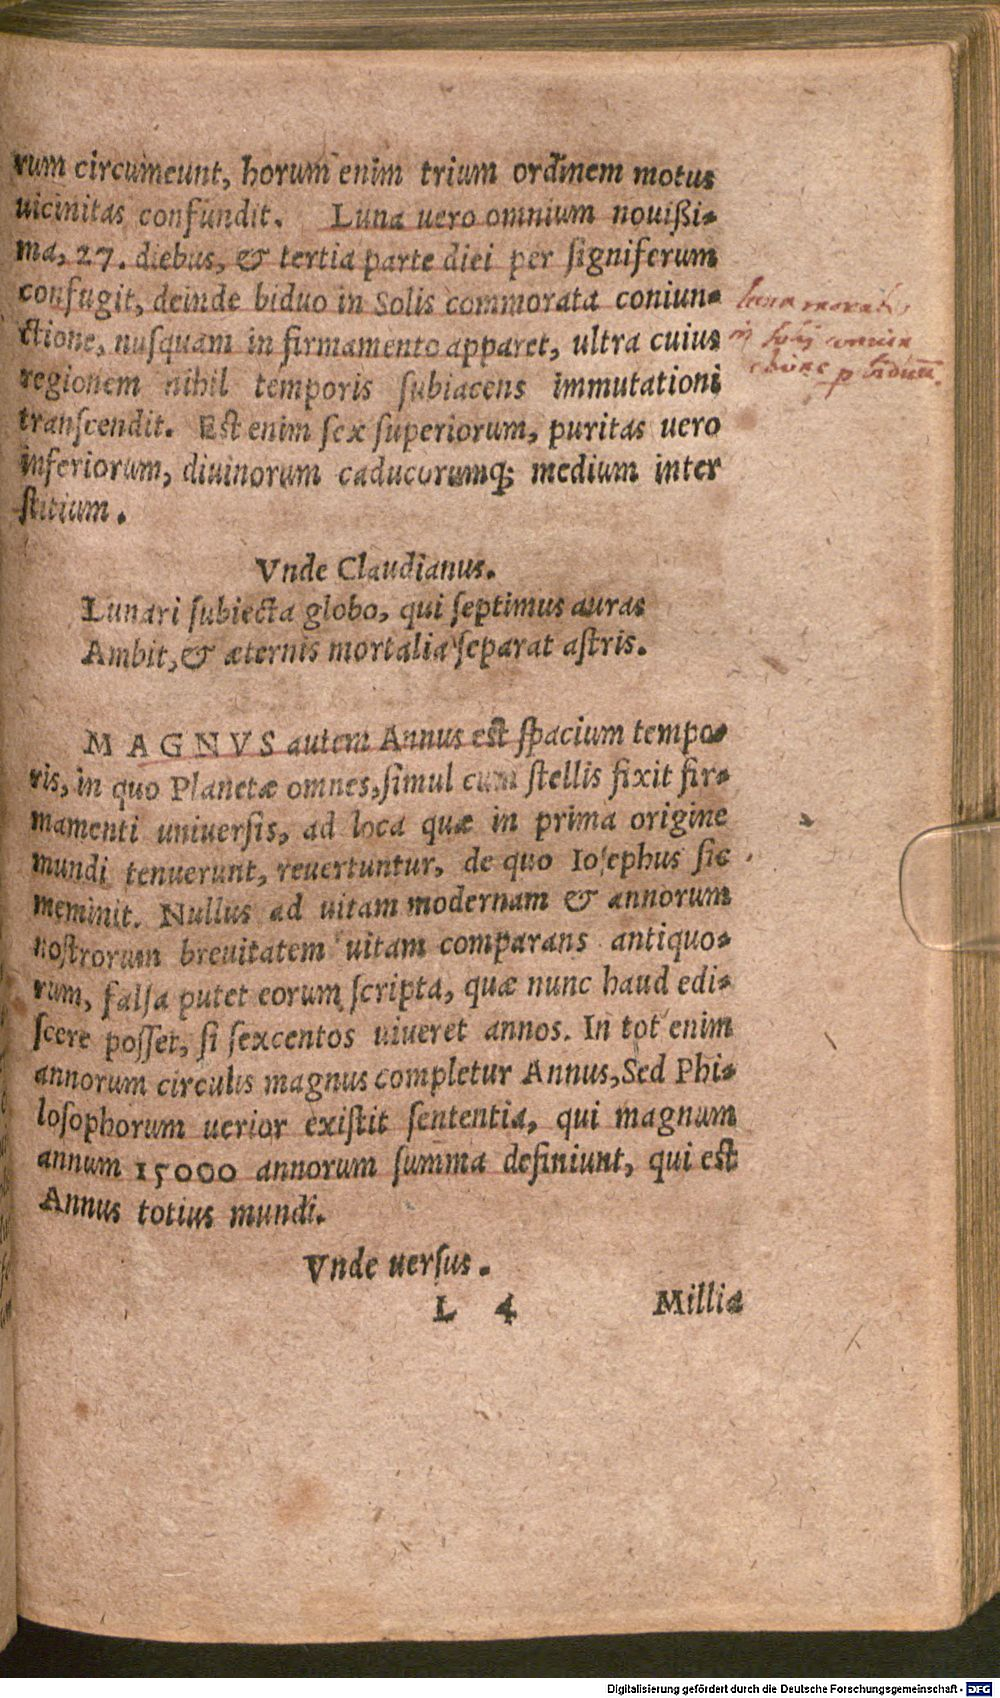 rum circumeunt, horum enim trium ordinem motus
uicinitas confundit. Luna uero omnium nouißi-
ma, 27. diebus, & tertia parte diei per signiferum
confugit, deinde biduo in Solis commorata coniun-
ctione, nusquam in firmamento apparet, ultra cuius
regionem nihil temporis subiacens immutationi
transcendit. Est enim sex superiorum, puritas uero
inferiorum, diuinorum caducorumq; medium inter
stitium.
Vnde Claudianus.
Lunari subiecta globo, qui septimus auras
Ambit, & æternis mortalia separat astris.
MAGNVS autem Annus est spacium tempo-
ris, in quo Planetæ omnes, simul cum stellis fixit fir-
mamenti uniuersis, ad loca quæ in prima origine
mundi tenuerunt, reuertuntur, de quo Iosephus sic
meminit. Nullus ad uitam modernam & annorum
nostrorum breuitatem uitam comparans antiquo-
rum, falsa putet eorum scripta, quæ nunc haud edi-
scere posset, si sexcentos uiueret annos. In tot enim
annorum circulis magnus completur Annus, Sed Phi-
losophorum uerior existit sententia, qui magnum
annum 15000 annorum summa definiunt, qui est
Annus totius mundi.
Vnde uersus.
L 4 Millia
luna
in
Digitalisierung gefördert durch die Deutsche Forschungsgemeinschaft - DFG